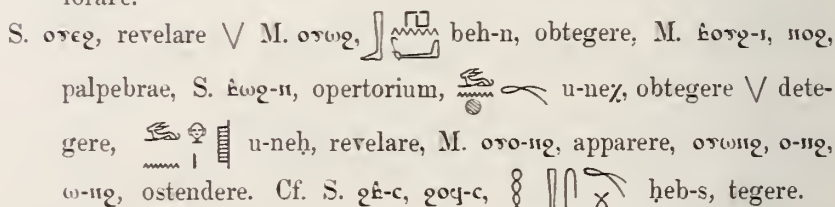 S. ⲟⲩⲉϩ, revelare ⋁ M. ⲟⲩⲱϩ, beh-n, obtegere, M. ⲃⲟⲩϩ-ⲓ, ⲛⲟϩ,
palpebrae, S. ⲃⲱϩ-ⲛ, opertorium, u-neχ, obtegere ⋁ dete-
gere, u-neḥ, revelare, M. ⲟⲩⲟ-ⲛϩ, apparere, ⲟⲩⲱⲛϩ, ⲟ-ⲛϩ,
ⲱ-ⲛϩ, ostendere. Cf. S. ϩⲃ-ⲥ, ϩⲟϥ-ⲥ, ḥeb-s, tegere.